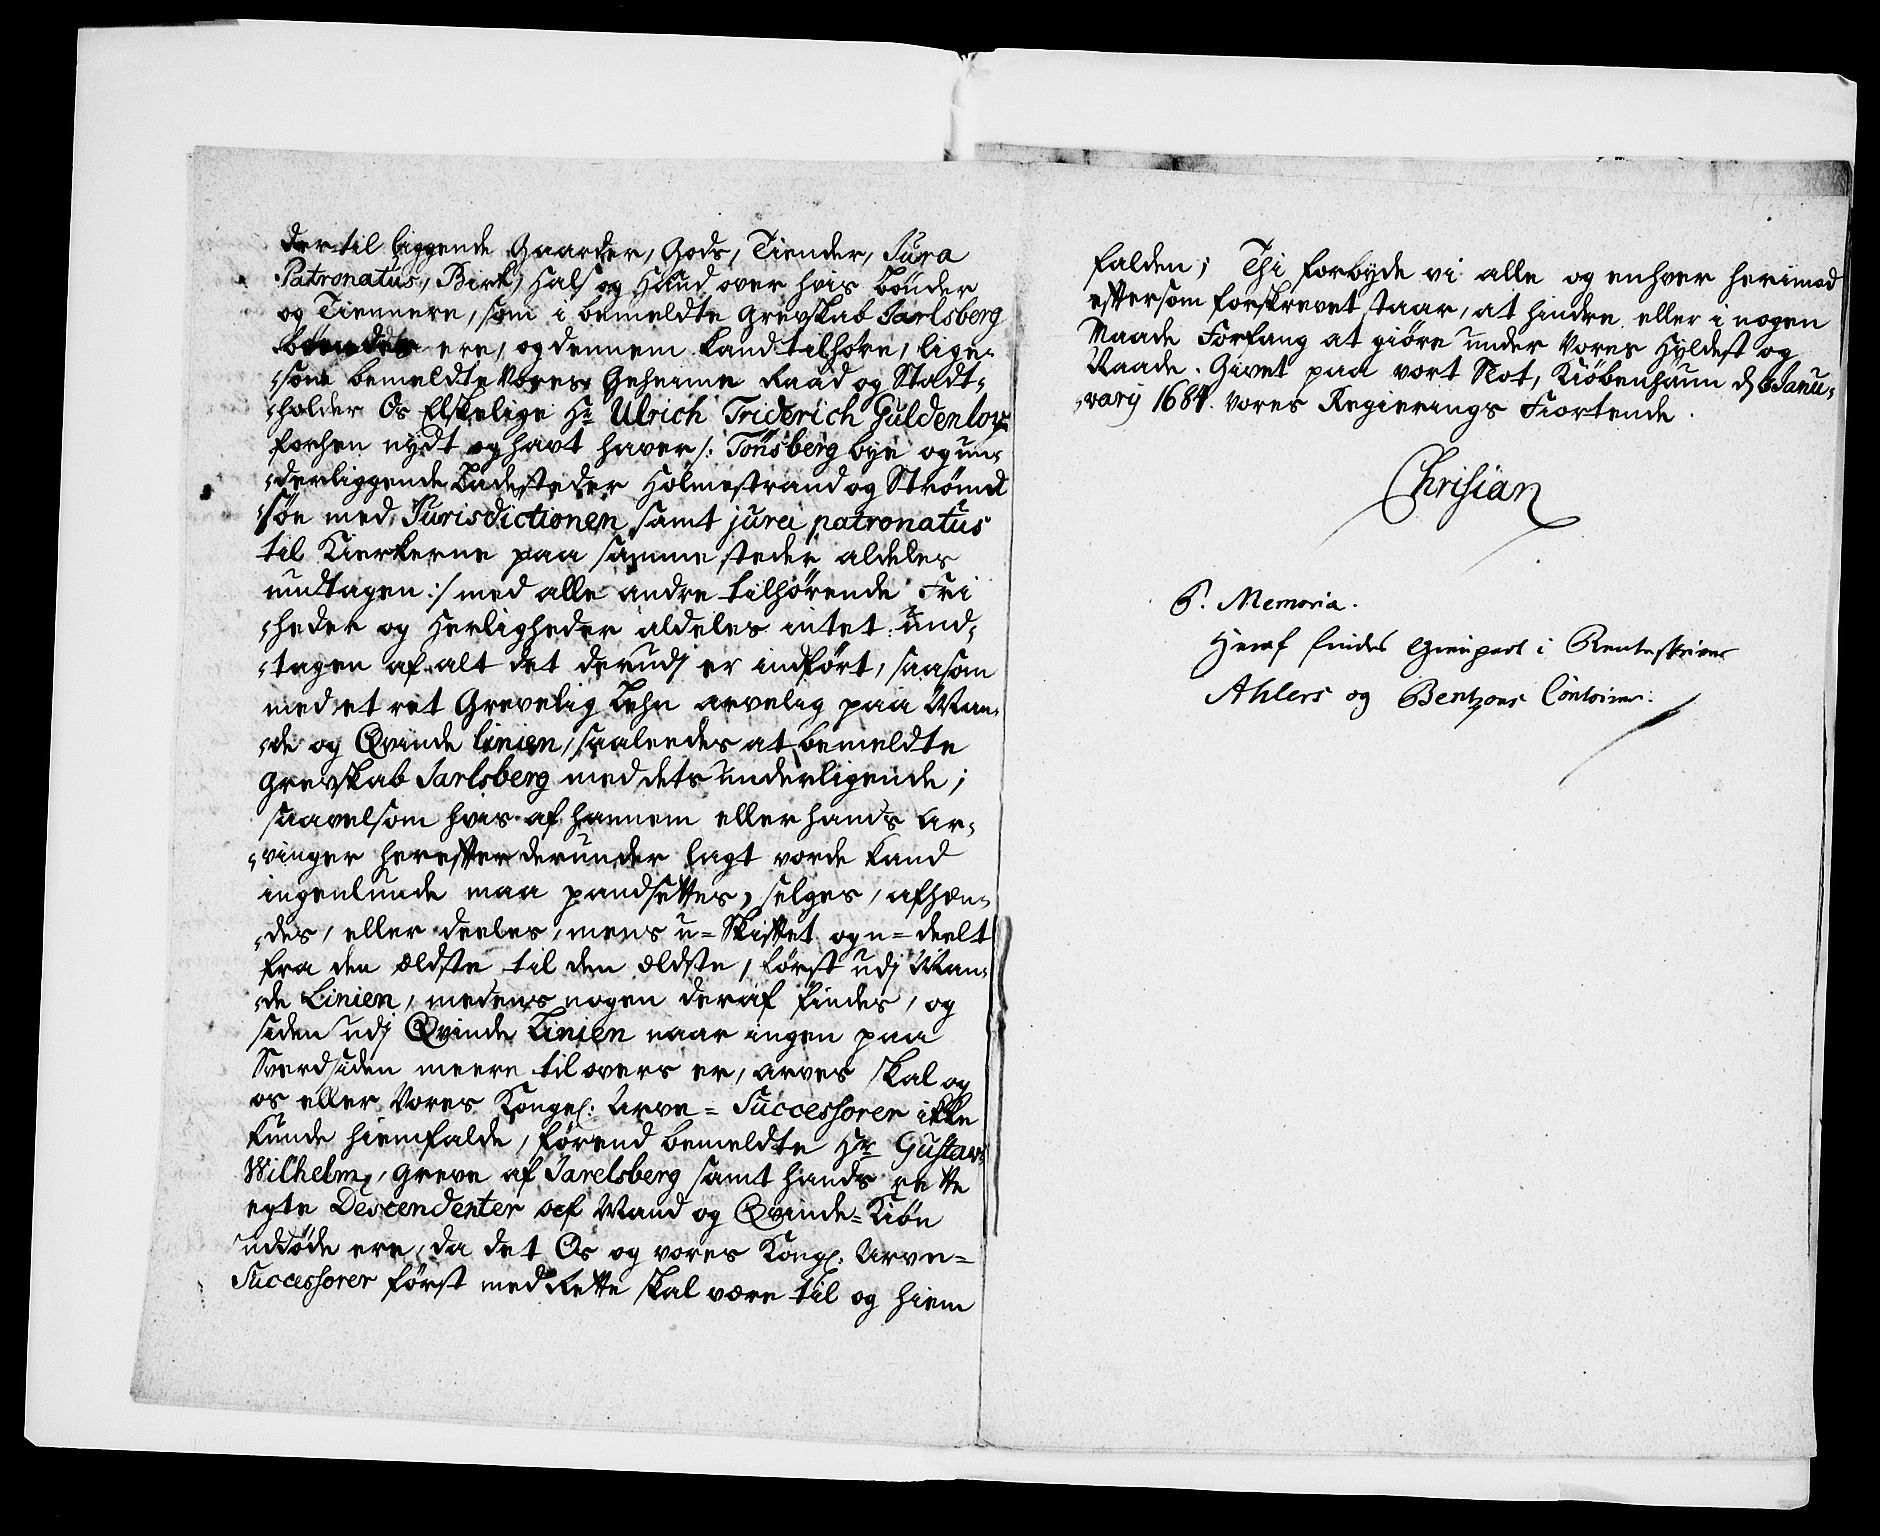 der til liggende Gaarder, Gods, Tiender, Jura
Patronatus, Birk, Hals og Haand over hvis bönder
og Tiennere, som i bemeldte Grevskab Jarlsberg
boendes ere, og dennem kand tilhöre, lige-
-som bemeldte Vores Geheime Raad og Stadt-
-holder Os Elskelige Hr Ulrich Friderich Guldenlöv
forhen nydt og havt haver /: Tönsberg bye og un-
-derliggende Ladesteder Holmestrand og Ströms-
-söe med Jurisdictionen samt jura patronatus
til Kierkerne paa samme steder aldeles
undtagen :/ med alle andre tilhörende Fri
-heder og Herligheder aldeles intet und-
-tagen af alt det derudj er indfört, saasom
med et ret Grevelig Lehn arvelig paa Man-
-de og Qvinde linien, saaledes at bemeldte
Grevskab Jarlsberg med dets underligende;
saavelsom hvis af hannem eller hands Ar-
-vinger herefter derunder lagt vorde kand
ingenlunde maa pandsettes, selges, afhæn-
-des, eller deeles, mens u-skiftet og u-deelt
fra den ældste til den ældste, först udj Man-
-de Linien, medens nogen deraf findes, og
siden udj Qvinde Linien naar ingen paa
Sverdsiden meere til overs er, arves skal og
os eller Vores Kongel: Arve-Successorer ikke
kunde hiemfalde, förend bemeldte Hr Gustav
Wilhelm, Greve af Jarelsberg samt hands rette
egte Descendenter af Mand og Qvinde-Kiön
uddöde ere, da det Os og vores Kongl: Arve-
Successorer först med Rette skal være til og hiem
falden; Thi forbyde vi alle og enhver herimod
eftersom forskrevet staar, at hindre eller i nogen
Maade Forfang at giöre under Vores Hyldest og
Naade. Givet paa vort Slot, Kiöbenhaun d 6 Janu-
-varij 1684. Vores Regierings Fiortende.
Christian
P. Memoria.
Heraf findes Gienpart i Renteskriver
Ahlers og Bentzons Contoirer.